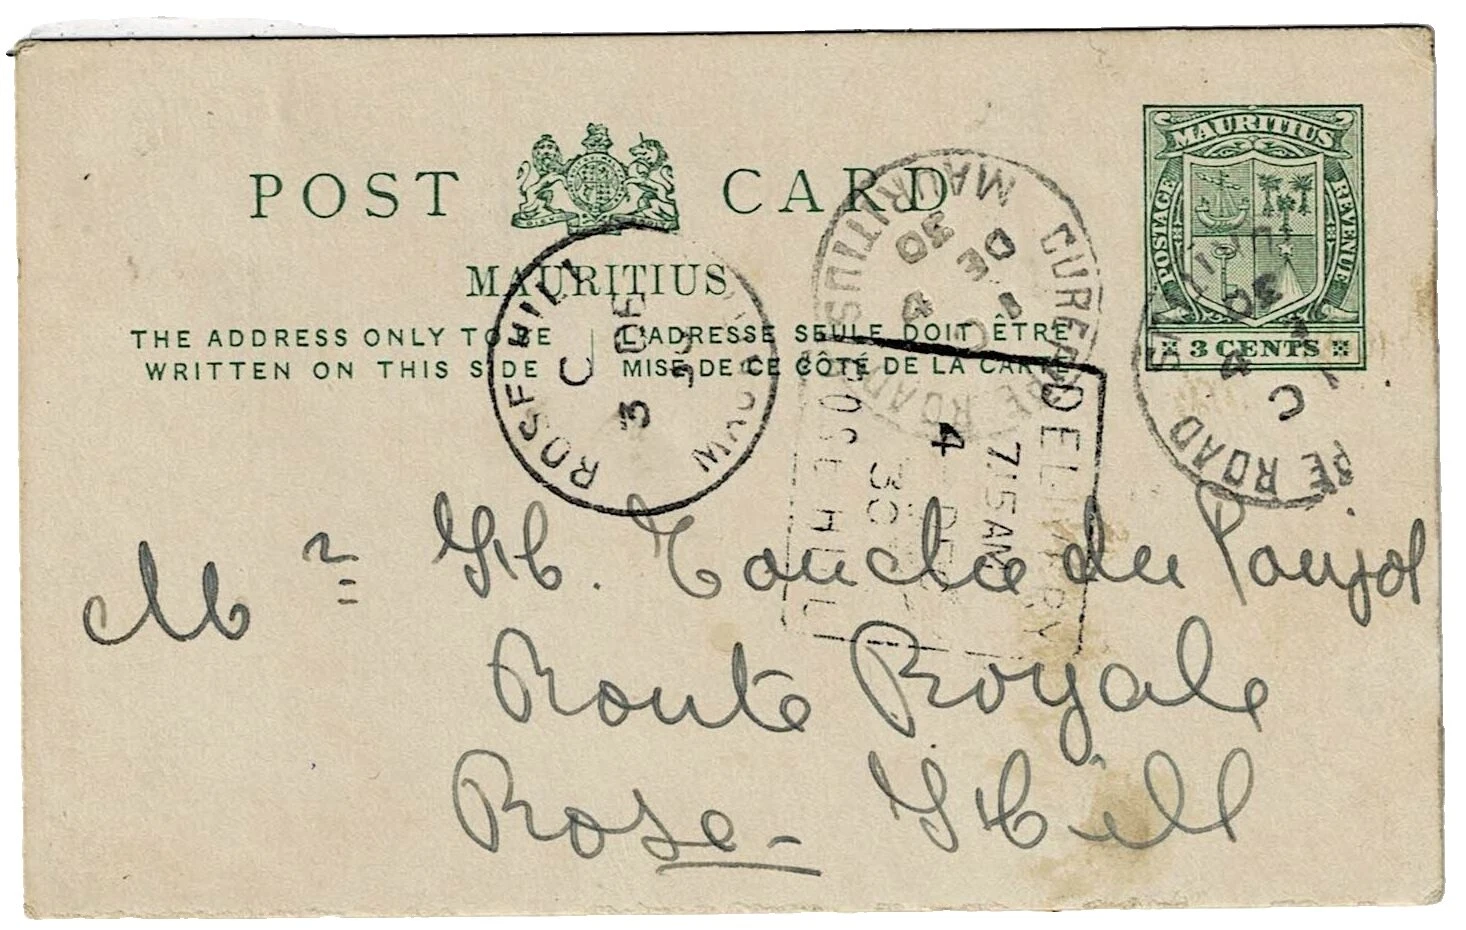 POST CARD
MAURITIUS
THE ADDRESS ONLY TO BE
WRITTEN ON THIS SIDE
L'ADRESSE SEULE DOIT ÊTRE
MISE DE CE CÔTÉ DE LA CARTE
MAURITIUS
POSTAGE
REVENUE
3 CENTS
ROSE HILL
C
3 DE
30
MAURITIUS
CUREPIPE ROAD
C
DE
30
4
PE ROAD
C
4
30
DELIVERY
7.15 AM
4 DEC
30
ROSE HILL
Mr H. Touche du Poujol
Route Royale
Rose-Hill